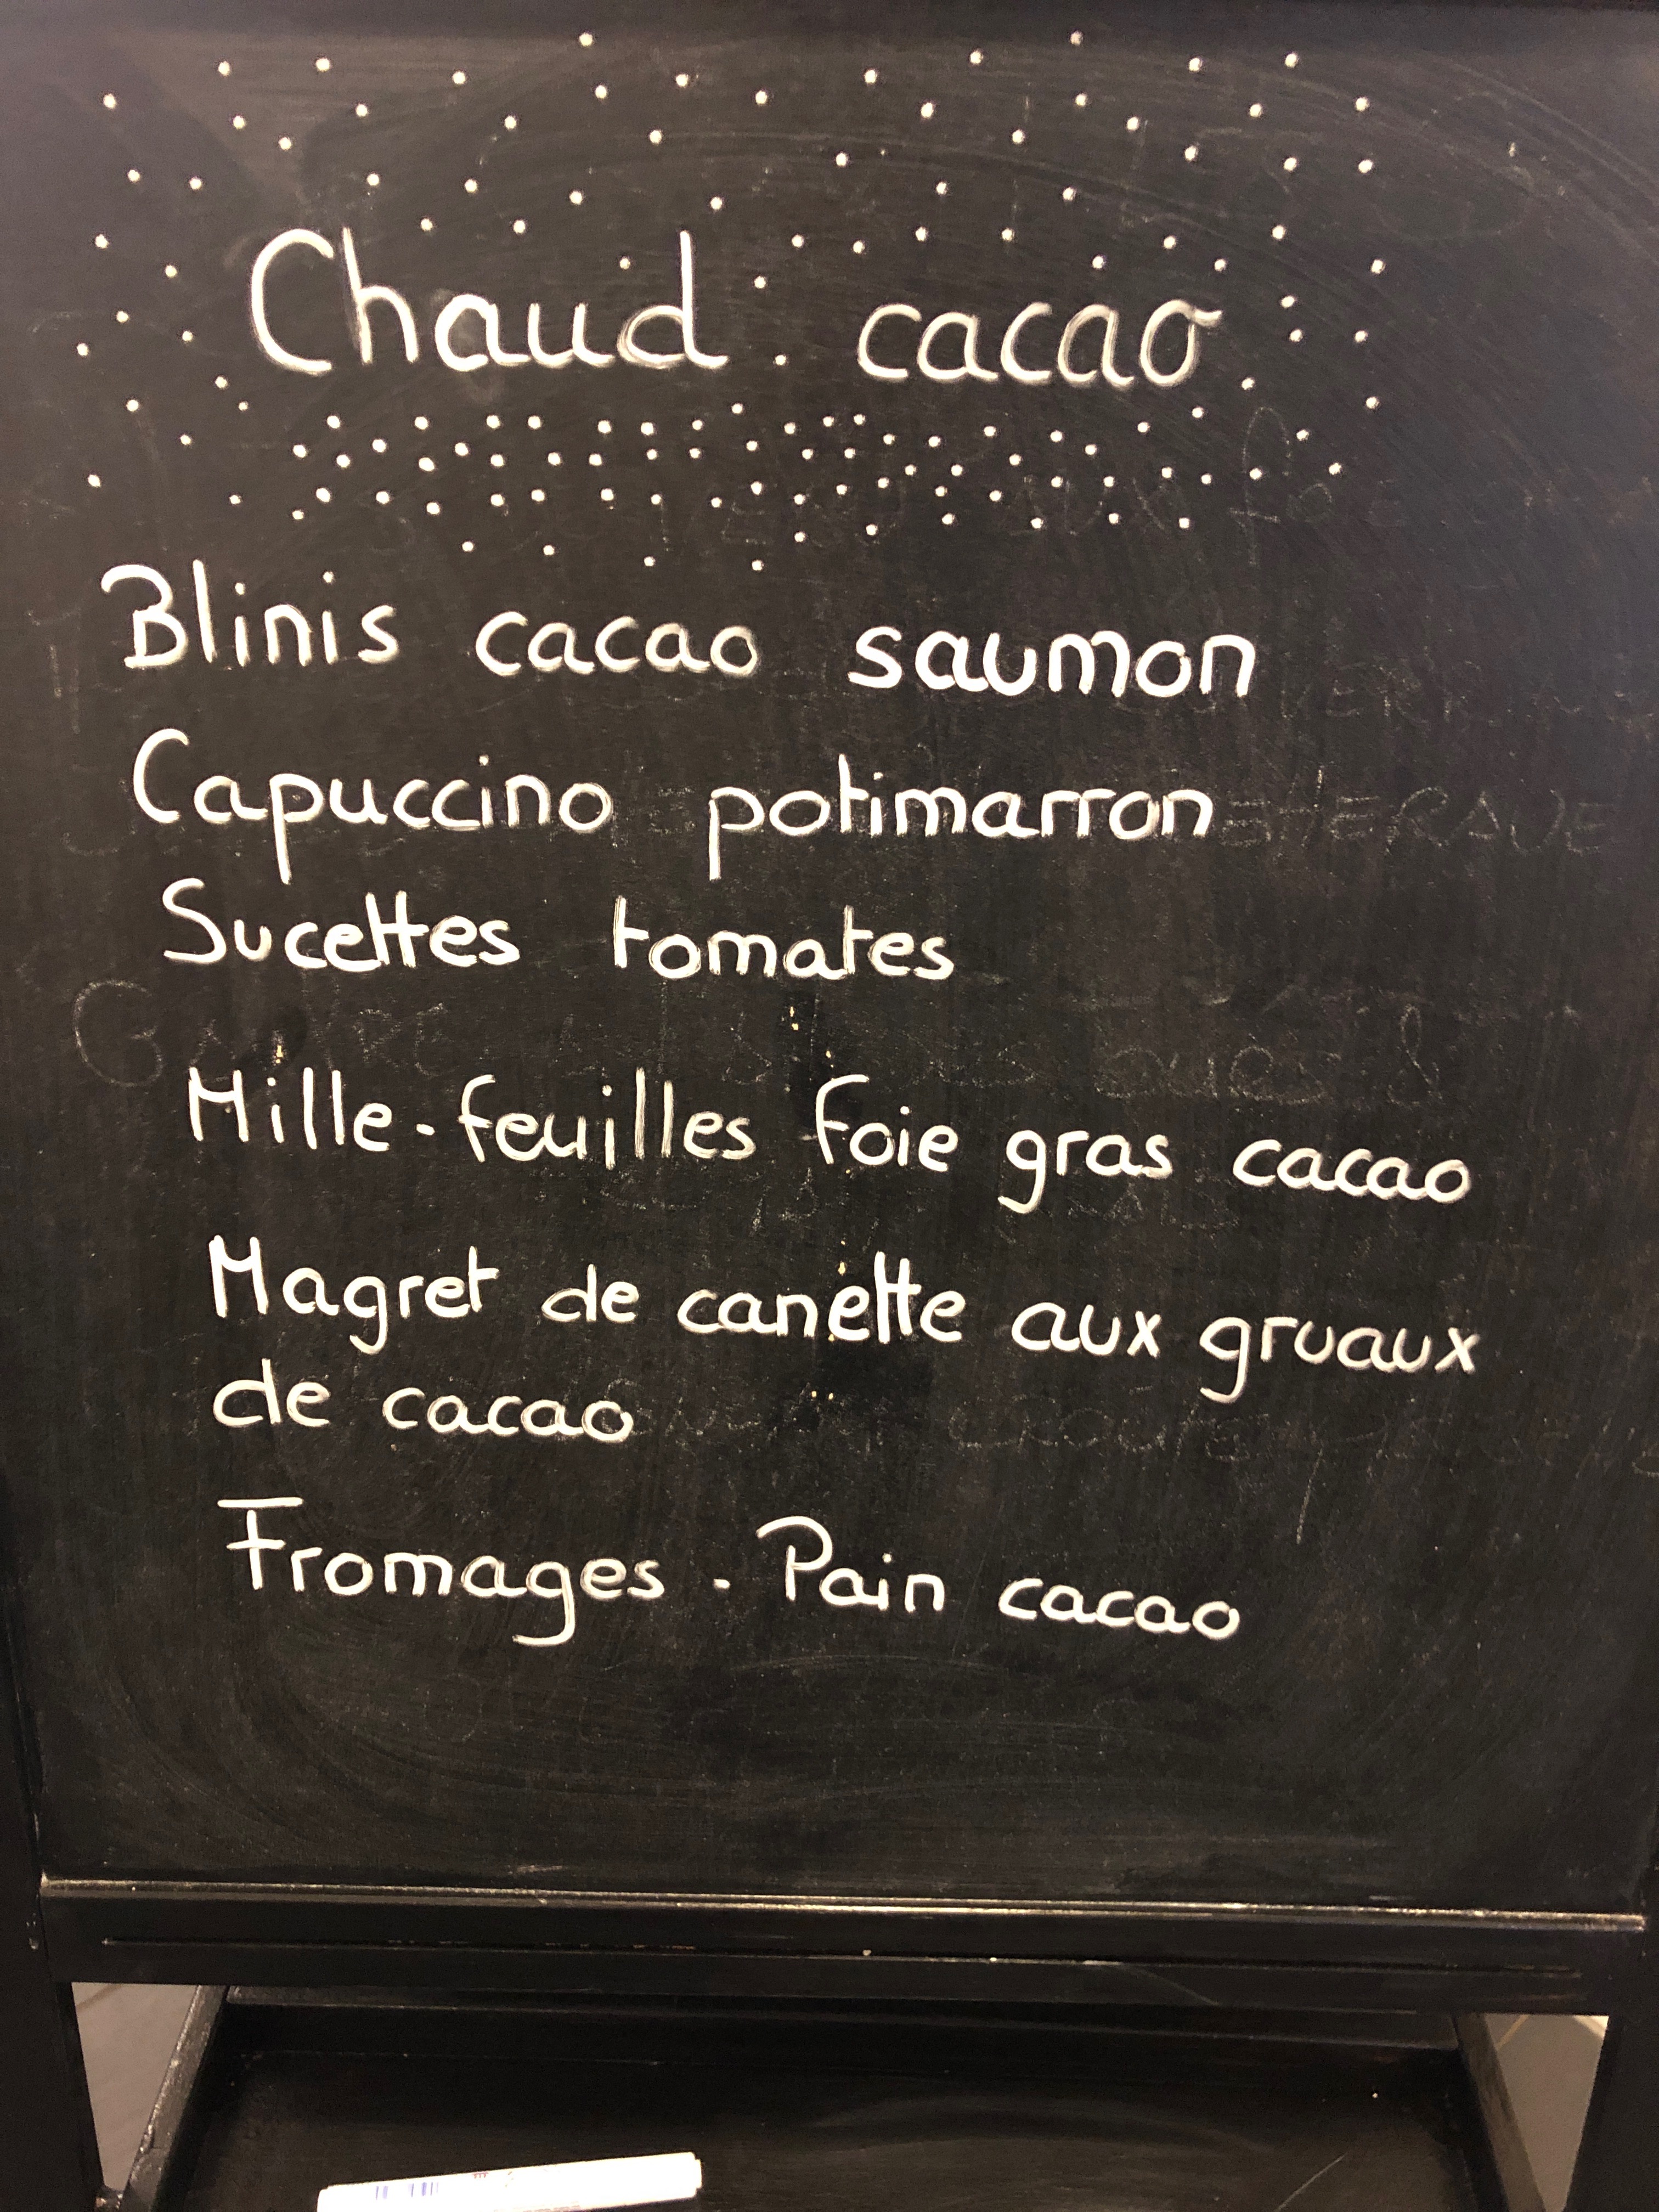 Chaud. cacao
Blinis cacao saumon
Capuccino potimarron
Sucettes tomates
Mille-feuilles foie gras cacao
Magret de canette aux gruaux
de cacao
Fromages. Pain cacao